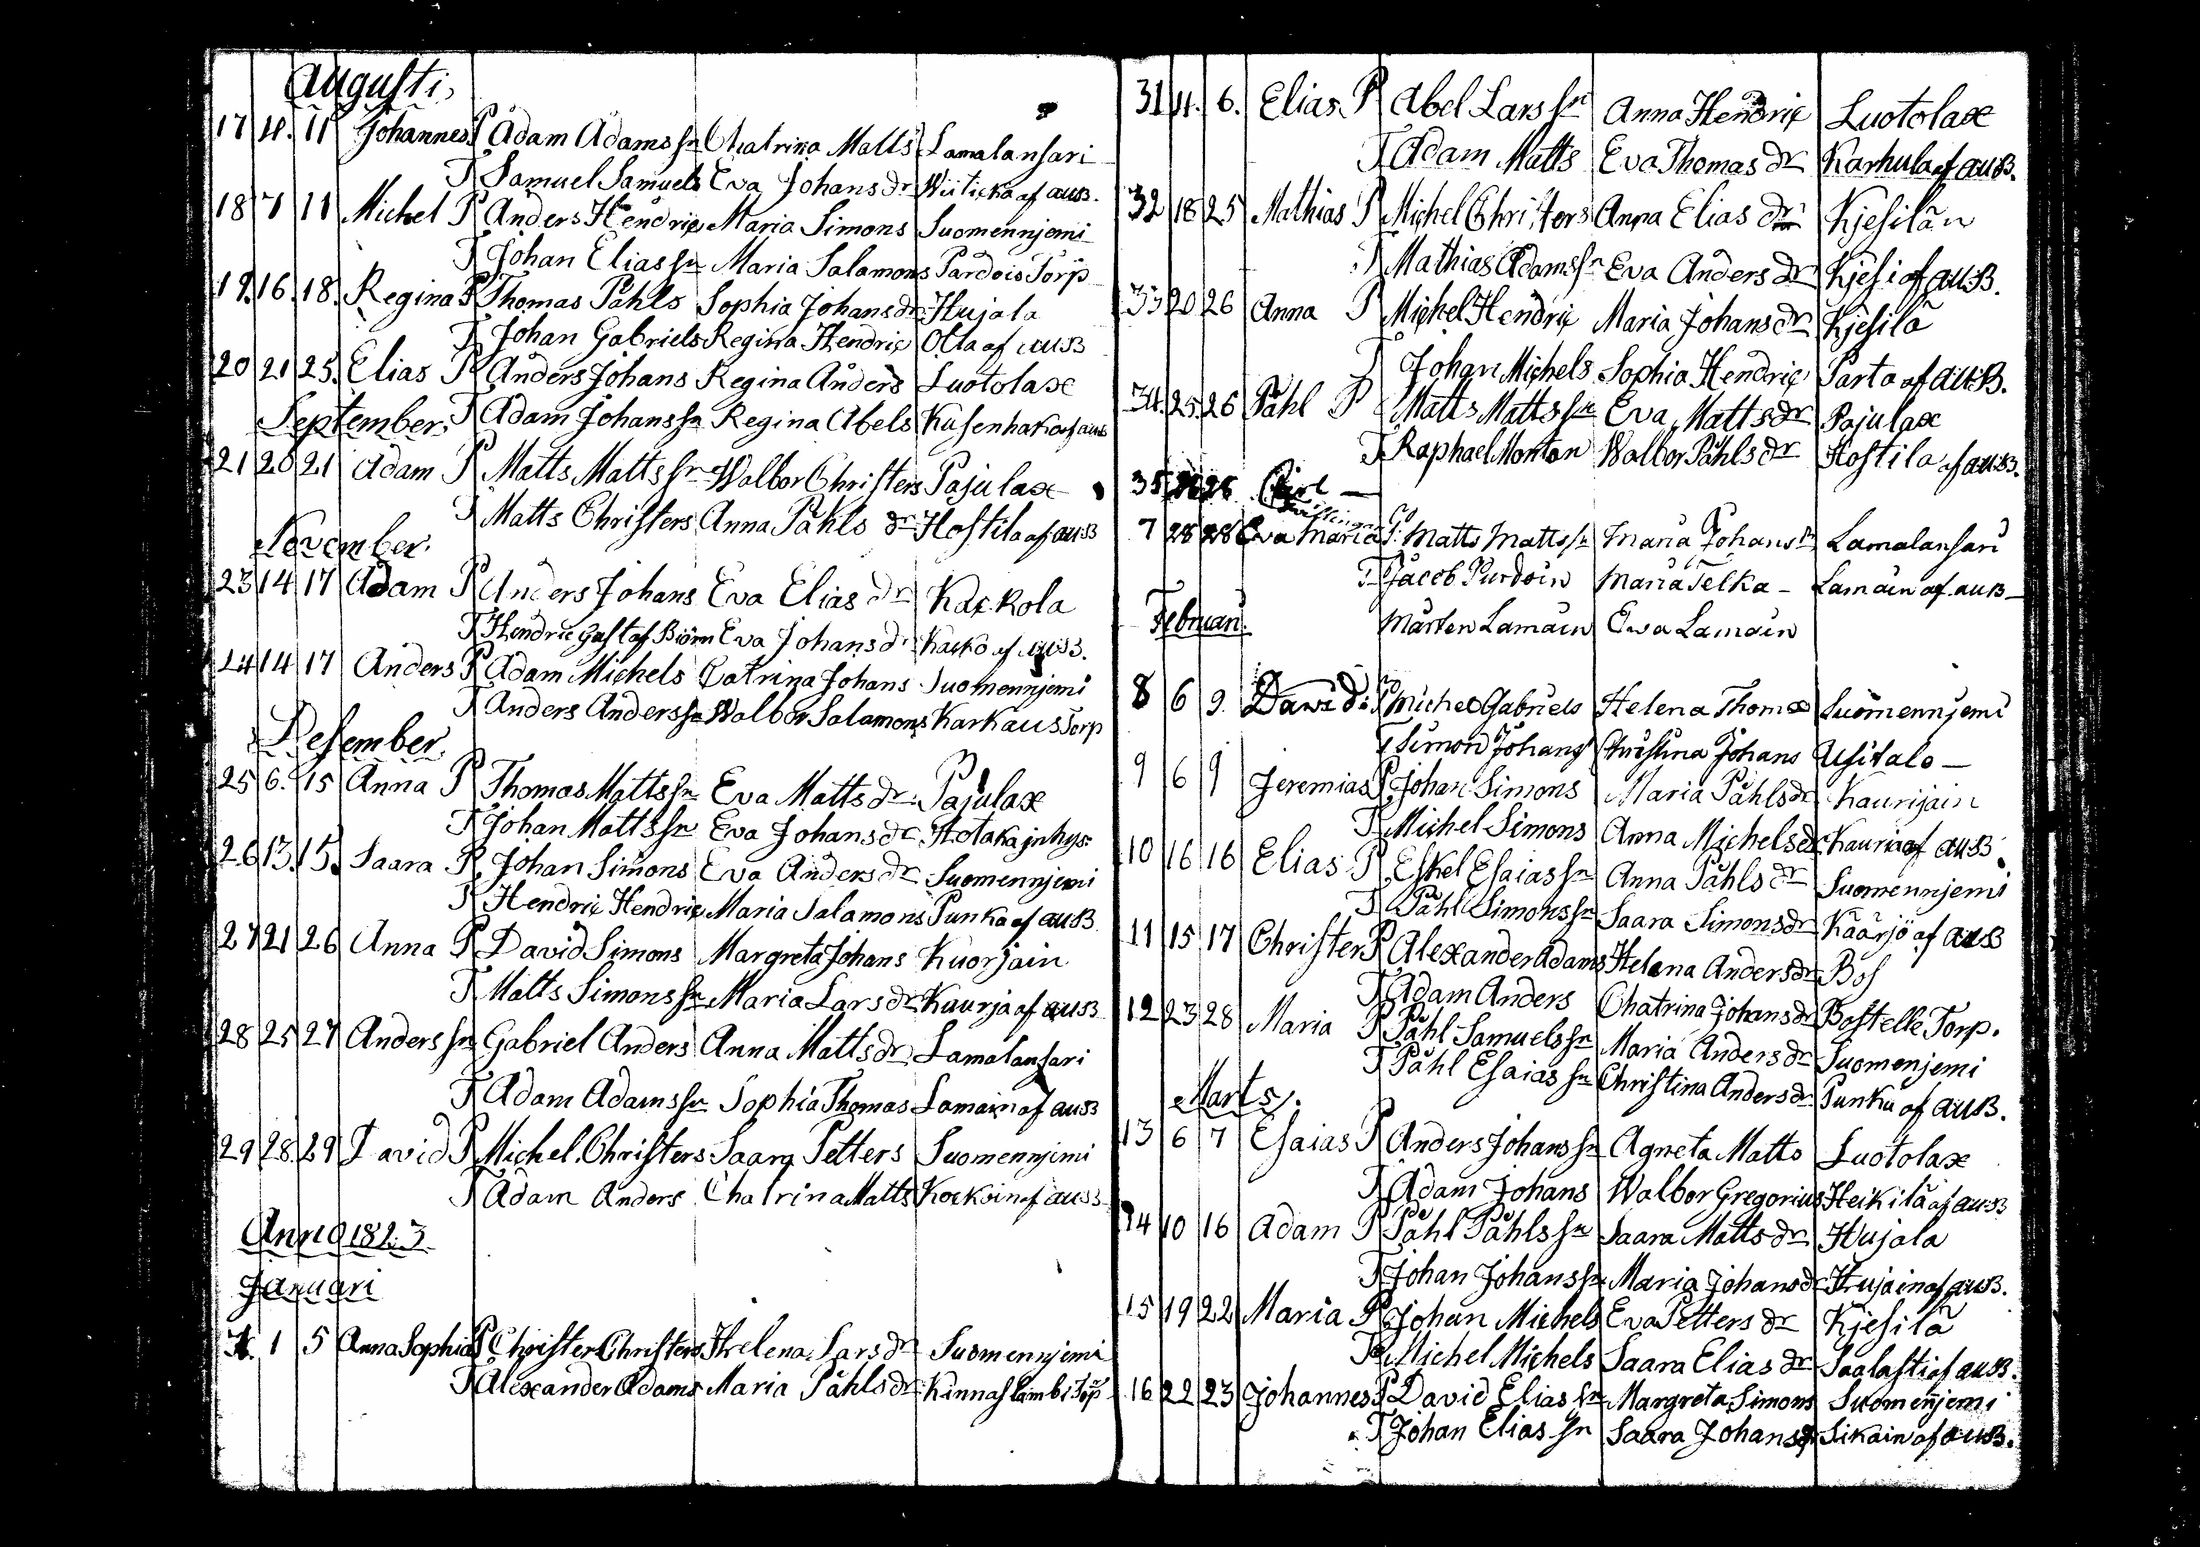 Augusti,
17 4. 11 Johannes P Adam Adams sn Chatrina Matts Lamalansari
T Samuel Samuels Eva Johans dr Wiiticka af auB.
18 7 11 Michel P Anders Hendric Maria Simons Suomennjemi
T Johan Elias sn Maria Salamons Pardois Torp
19. 16. 18. Regina P Thomas Påhls Sophia Johans dr Hujala
T Johan Gabriels Regina Hendric Olla af auB
20 21 25. Elias P Anders Johans Regina Anders Luotolax
September. T Adam Johans sn Regina Abels Kusenhako af auB
21 20 21 Adam P Matts Matts sn Walbor Christers Pajulax
T Matts Christers Anna Påhls dr Hostila af auB
November.
23 14 17 Adam P Anders Johans Eva Elias dr Kackola
T Hendric Gustaf Biörn Eva Johans dr Kacko af auB.
24 14 17 Anders P Adam Michels Catrina Johans Suomennjemi
T Anders Anders sn Walbor Salamons Karkaus Torp
Desember.
25 6. 15 Anna P Thomas Matts sn Eva Matts dr. Pajulax
T Johan Matts sn Eva Johans dr Hotaka inhys
26 13. 15. Saara P Johan Simons Eva Anders dr Suomennjemi
T Hendric Hendric Maria Salamons Punka af auB
27 21 26 Anna P David Simons Margreta Johans Kuorjain
T Matts Simons sn Maria Lars dr Kuurja af auB
28 25 27 Anders sn Gabriel Anders Anna Matts dr Lamalansari
T Adam Adams sn Sophia Thomas Lamain af auB
29 28. 29 David P Michel Christers Saara Petters Suomennjemi
T Adam Anders Chatrina Matts Kocksin af auB
Anno 1823
Januari
1 5 Anna Sophia P Christer Christers Helena Lars dr Suomennjemi
T Alexander Adams Maria Påhls dr Kinnaslambi Torp
31 4. 6. Elias P Abel Lars sn Anna Hendric Luotolax
T Adam Matts Eva Thomas dr Karhula af auB.
32 18 25 Mathias P Michel Christers Anna Elias dr Kjesilän
T Mathias Adams sn Eva Anders dr Kjesi af auB.
33 20 26 Anna P Michel Hendric Maria Johans dr Kjesilä
T Johan Michels Sophia Hendric Parta af auB.
34. 25. 26 Påhl P Matts Matts sn Eva Matts dr Pajulax
T Raphael Monton Walbor Påhls dr Hostila af auB.
35
7 28 28 Eva Maria P Matts Matts sn Maria Johans dr Lamalansari
T Jacob Purdoin Maria Telka - Lamain af auB -
Februari. Mårten Lamain Ewa Lamain
8 6 9. Dawid: P Michel Gabriels Helena Thomas Suomennjemi
T Simon Johans Christina Johans Usitalo -
9 6 9 Jeremias P Johan Simons Maria Påhls dr Kaurijain
T Michel Simons Anna Michels dr Kauria af auB.
10 16 16 Elias P Eskel Esaias sn Anna Påhls dr Suomennjemi
T Påhl Simons sn Saara Simons dr Käärjö af auB
11 15 17 Christer P Alexander Adams Helena Anders dr Bos
T Adam Anders Chatrina Johans dr Bostelle Torp.
12 23 28 Maria P Påhl Samuels sn Maria Anders dr Suomenjemi
T Påhl Esaias sn Christina Anders dr Punka af auB.
Marts.
13 6 7 Esaias P Anders Johans sn Agneta Matts Luotolax
T Adam Johans Walbor Gregorius Heikilä af auB
14 10 16 Adam P Påhl Påhls sn Saara Matts dr Hujala
T Johan Johans sn Maria Johans dr Hujain af auB.
15 19 22 Maria P Johan Michels Eva Petters dr Kjesilä
T Michel Michels Saara Elias dr Saalasti af auB.
16 22 23 Johannes P David Elias sn Margreta Simons Suomenjemi
T Johan Elias sn Saara Johans dr Sikäin af auB.